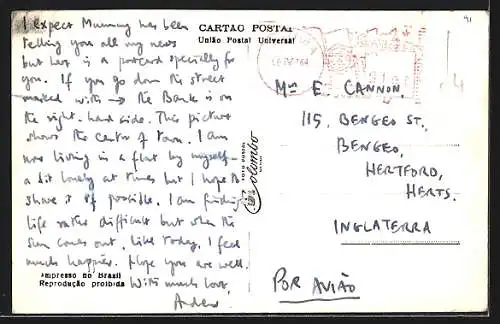 CARTÃO POSTAL
União Postal Universal
I expect Mummy has been
telling you all my news
but here is a postcard specially for
you. If you go down the street
marked with → the Bank is on
the right-hand side. This picture
shows the centre of town. I am
now living in a flat by myself -
a bit lonely at times but I hope to
share it if possible. I am finding
life rather difficult but when the
sun comes out, like today, I feel
much happier. Hope you are well.
With much love,
Andrew
Impresso no Brasil
Reproducão proibida
Colombo
Mrs E. CANNON,
115, BENGEO ST.,
BENGEO,
HERTFORD,
HERTS.
INGLATERRA
POR AVIÃO
91
4